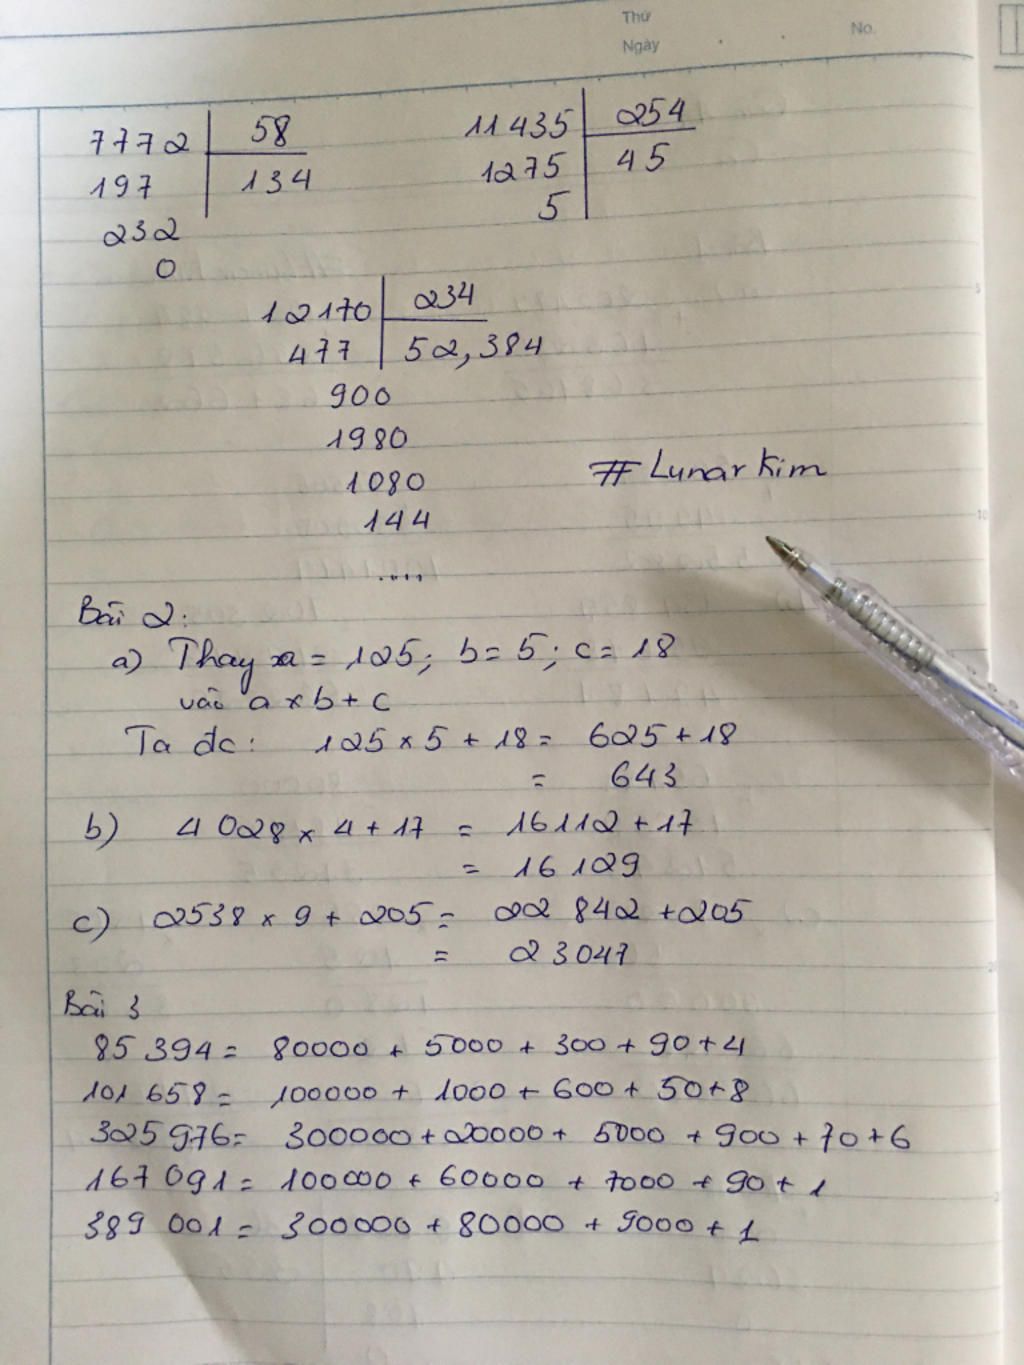 Thứ
Ngày
No.
7772 58
197 134
232
0
11435 254
1275 45
5
12170 234
477 52,384
900
1980
1080
144
....
# Lunar Kim
Bài 2:
a) Thay a = 125; b = 5; c = 18
vào a × b + c
Ta đc: 125 × 5 + 18 = 625 + 18
= 643
b) 4 028 × 4 + 17 = 16112 + 17
= 16 129
c) 2538 × 9 + 205 = 22 842 + 205
= 23047
Bài 3
85 394 = 80000 + 5000 + 300 + 90 + 4
101 658 = 100000 + 1000 + 600 + 50 + 8
325 976 = 300000 + 20000 + 5000 + 900 + 70 + 6
167 091 = 100000 + 60000 + 7000 + 90 + 1
389 001 = 300000 + 80000 + 9000 + 1